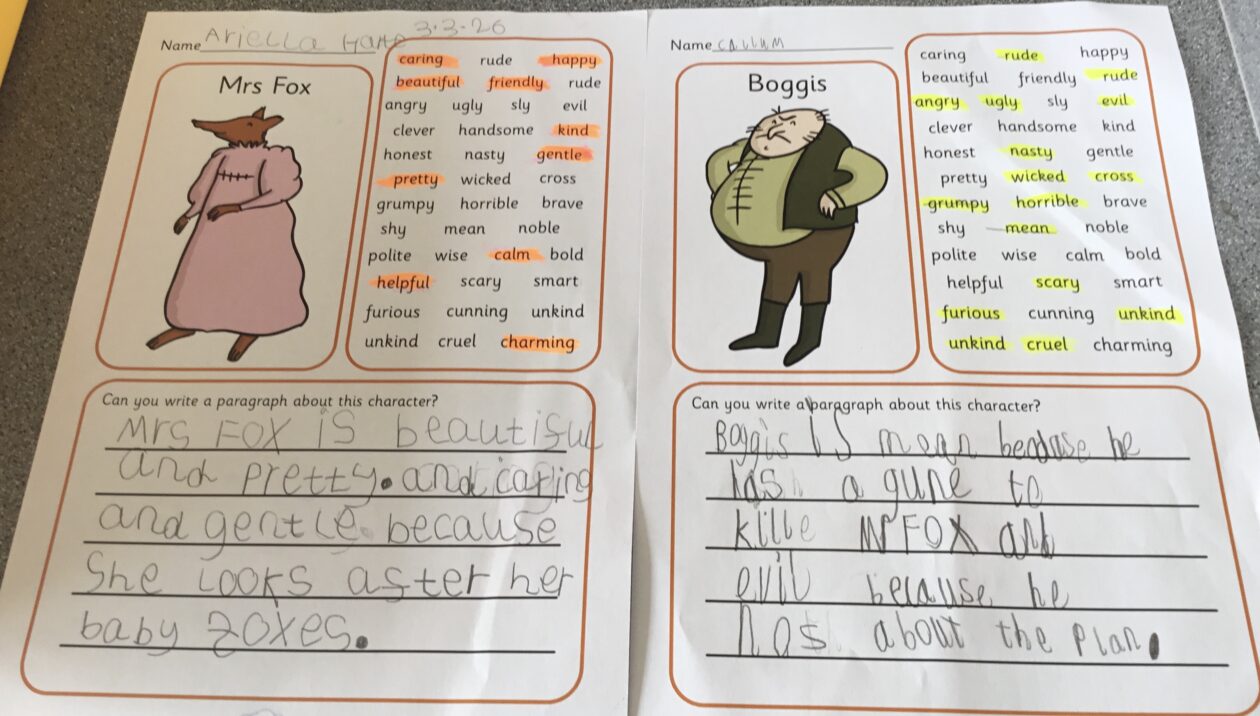 Name Ariella 3.3.26
Mrs Fox
caring rude happy
beautiful friendly rude
angry ugly sly evil
clever handsome kind
honest nasty gentle
pretty wicked cross
grumpy horrible brave
shy mean noble
polite wise calm bold
helpful scary smart
furious cunning unkind
unkind cruel charming
Can you write a paragraph about this character?
Mrs Fox is beautiful
and pretty. and caring
and gentle because
She Looks after her
baby foxes.
Name CALLUM
Boggis
caring rude happy
beautiful friendly rude
angry ugly sly evil
clever handsome kind
honest nasty gentle
pretty wicked cross
grumpy horrible brave
shy mean noble
polite wise calm bold
helpful scary smart
furious cunning unkind
unkind cruel charming
Can you write a paragraph about this character?
Boggis IS mean because he
has a gune to
kille Mr FOX and
evil because he
has about the plan.